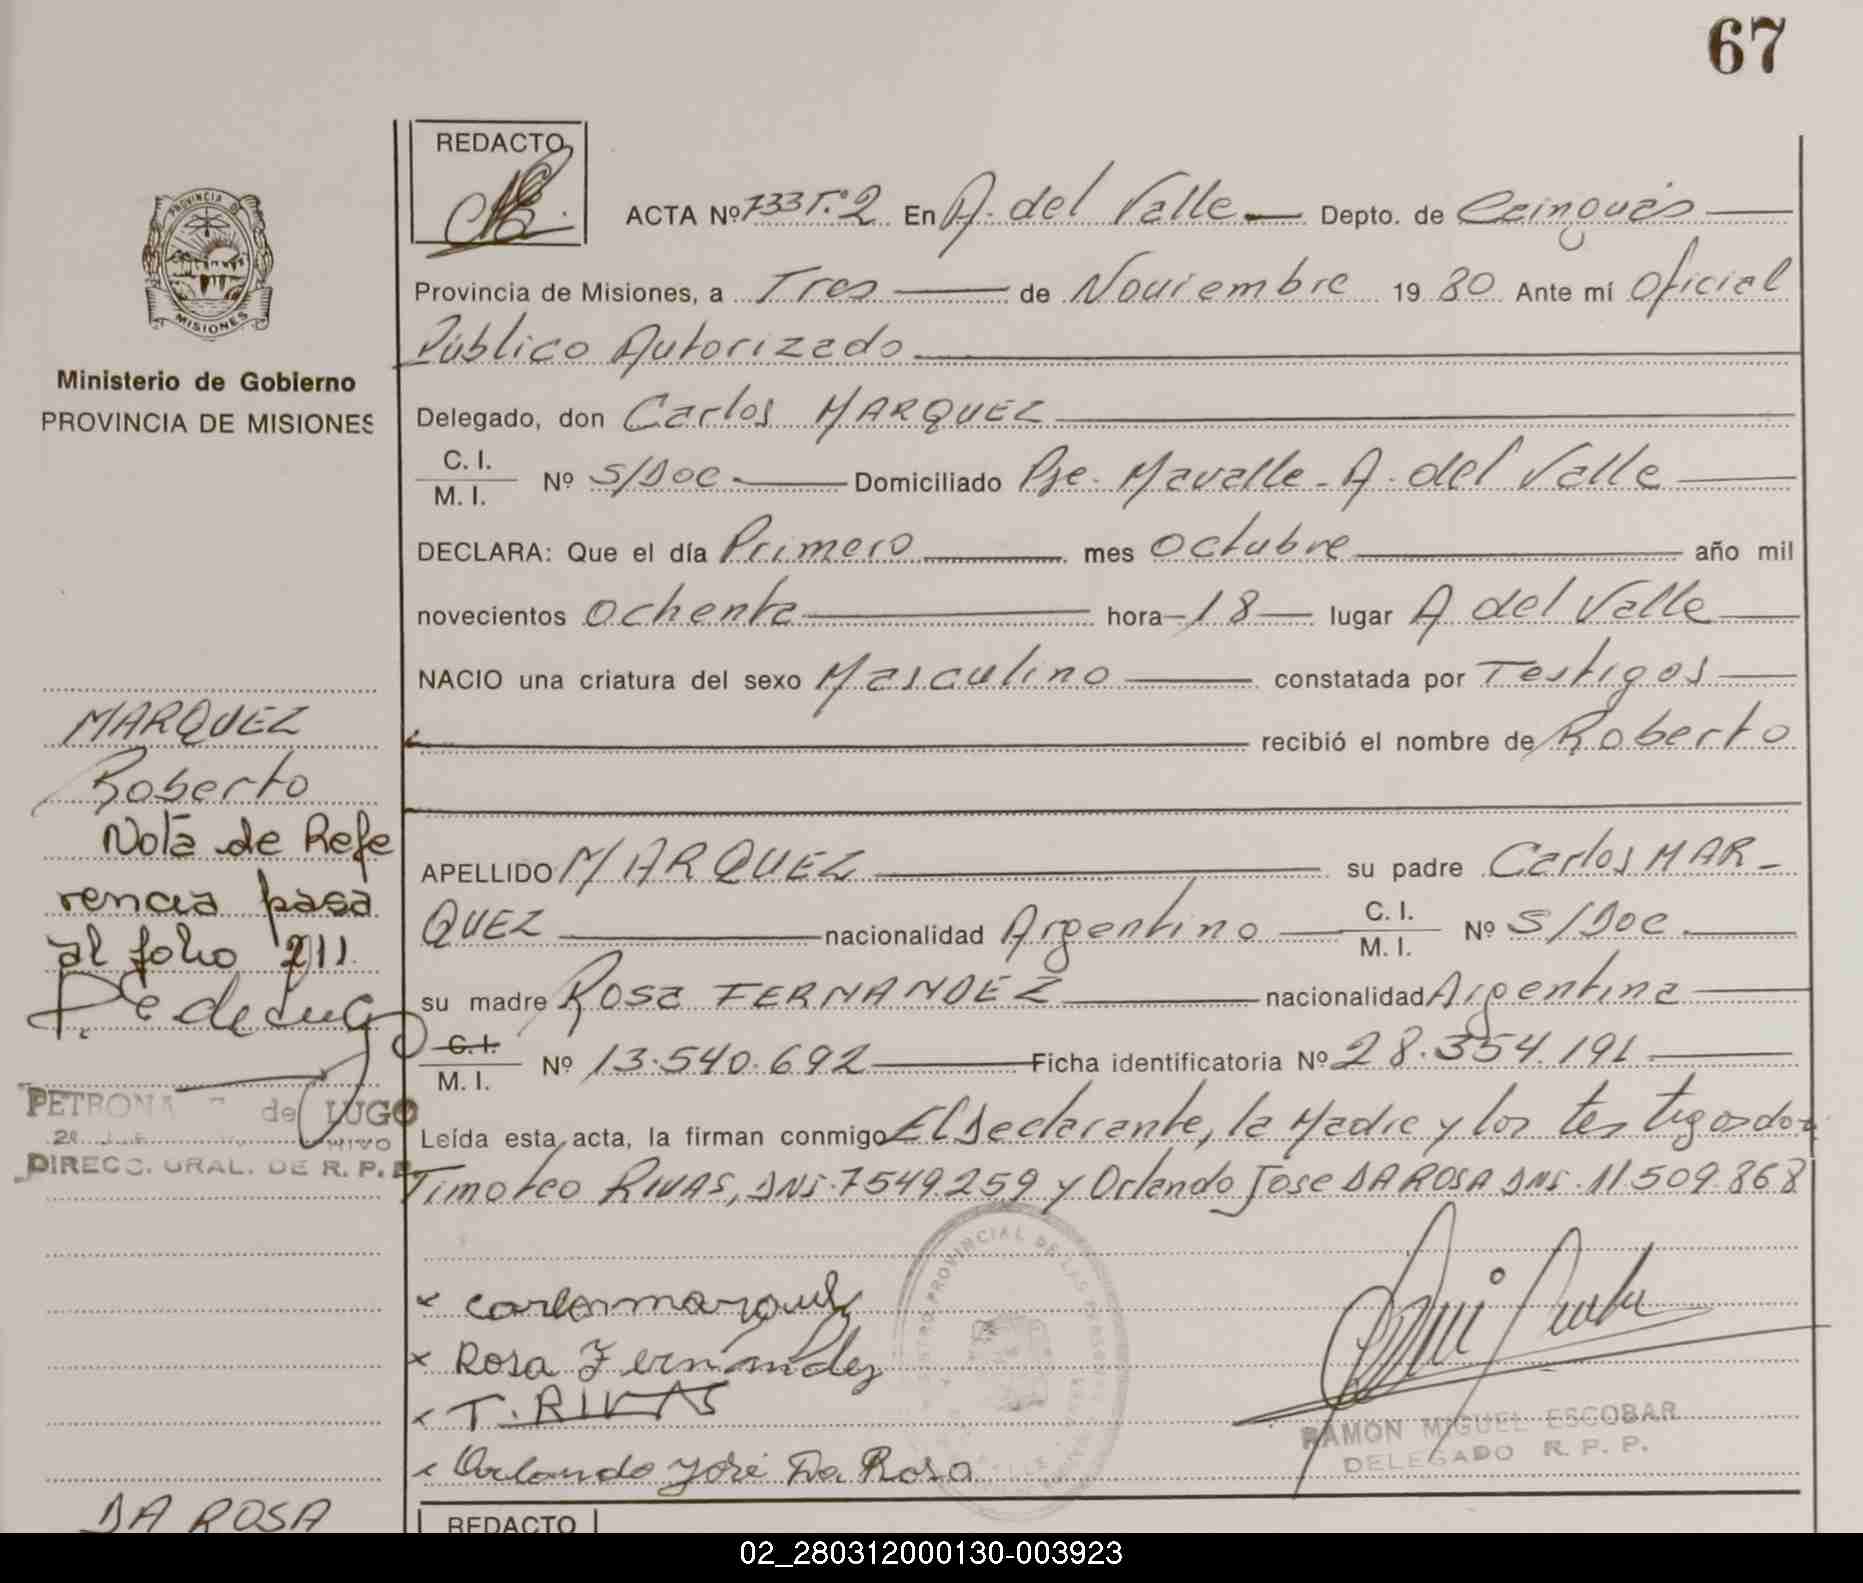 67
REDACTO
ACTA Nº 733 T.º 2 En A. del Valle Depto. de Cainguás
Provincia de Misiones, a Tres de Noviembre 19 80 Ante mí Oficial
Público Autorizado
Delegado, don Carlos MARQUEZ
C. I.
M. I.
Nº S/Doc Domiciliado Pje. Mavalle - A. del Valle
DECLARA: Que el día Primero mes Octubre año mil
novecientos Ochenta hora 18 lugar A del Valle
NACIO una criatura del sexo Masculino constatada por Testigos
recibió el nombre de Roberto
APELLIDO MARQUEZ su padre Carlos MAR-
QUEZ nacionalidad Argentino C. I. M. I. Nº S/Doc
su madre Rosa FERNANDEZ nacionalidad Argentina
C. I.
M. I.
Nº 13.540.692 Ficha identificatoria Nº 28.354.191
Leída esta acta, la firman conmigo El Declarante, la Madre y los testigos don
Timoteo RIVAS, DNI. 7549.259 y Orlando Jose DA ROSA DNI. 11.509.868
Carlos marquez
Rosa Fernandez
T. RIVAS
Orlando José Da Rosa
RAMON MIGUEL ESCOBAR
DELEGADO R. P. P.
PROVINCIA DE
MISIONES
Ministerio de Gobierno
PROVINCIA DE MISIONES
MARQUEZ
Roberto
Nota de Refe
rencia pasa
al folio 211.
PETRONA de LUGO
DIRECC. GRAL. DE R. P. P.
DA ROSA
REDACTO
02_280312000130-003923